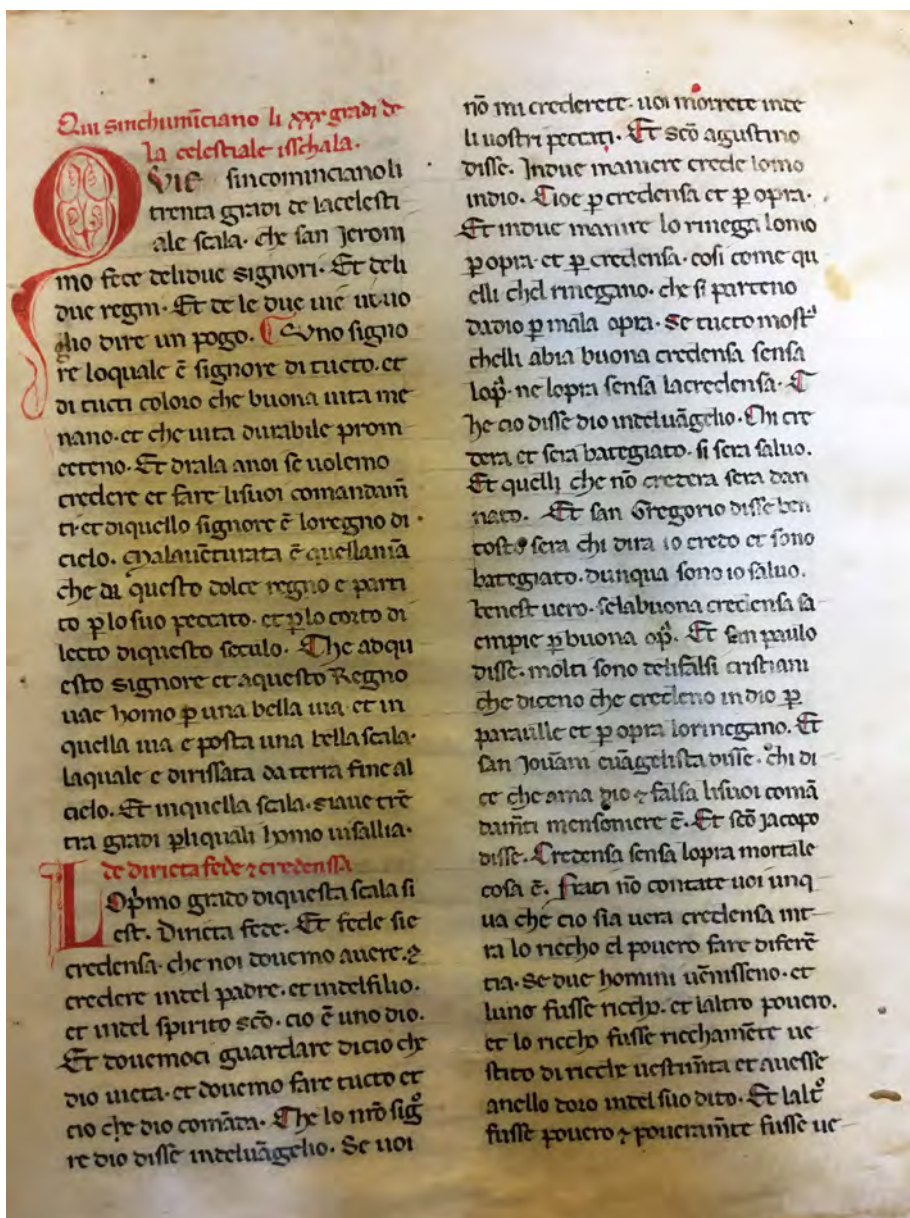 Qui sinchumīciano li xxx gradi de
la celestiale ischala.
QVIE sincominciano li
trenta gradi de lacelesti
ale scala. che san Jeroni
mo fece delidue signori. Et deli
due regni. Et de le due uie ui uo
glio dire un pogo. Uno signo
re loquale ē signore di tucto. et
di tucti coloro che buona uita me
nano. et che uita durabile prom
eteno. Et drala anoi se uolemo
credere et fare lisuoi comandam̄
ti. et diquello signore ē loregno di
cielo. Malauēturata ē quellanīa
che di questo dolce regno e parti
to ꝑ lo suo peccato. et ꝑlo corto di
lecto diquesto seculo. Che adqu
esto signore et aquesto Regno
uae homo ꝑ una bella uia. et in
quella uia e posta una bella scala.
laquale e dirissata da terra fine al
cielo. Et inquella scala. siaue trē
tra gradi ꝑliquali homo uisallia.
De diricta fede ⁊ credenssa
LO pͥmo grado diquesta scala si
est. Diricta fede. Et fede sie
credensa. che noi douemo auere. ⁊
credere intel padre. et intelfilio.
et intel spirito sc̄o. cio ē uno dio.
Et douemoci guardare dicio che
dio uieta. et douemo fare tucto et
cio che dio comāda. Che lo nr̄o sig̊
re dio disse inteluāgelio. Se uoi
nō mi crederete. uoi morrete inte
li uostri peccati. Et sc̄o agustino
disse. Indue maniere crede lomo
indio. Cioe ꝑ credensa et ꝑ opra.
Et indue manire lo rinega lomo
ꝑ opra. et ꝑ credensa. cosi come qu
elli chel rinegano. che si parteno
dadio ꝑ mala opra. Se tucto most
chelli abia buona credensa sensa
lop̄. ne lopra sensa lacredensa. C
he cio disse dio inteluāgelio. Chi cre
dera et sera bategiato. si sera saluo.
Et quelli che nō credera sera dan
nato. Et san Gregorio disse ben
tosto sera chi dira io credo et sono
bategiato. dunqua sono io saluo.
benest uero. selabuona credensa sa
empie ꝑ buona op̄. Et san paulo
disse. molti sono delifalsi cristiani
che diceno che credeno in dio ꝑ
paraulle et ꝑ opra lorinegano. Et
san Jouāni euāgelista disse. chi di
ce che ama dio ⁊ falsa lisuoi comā
damēti mensoniere ē. Et sc̄o Jacopo
disse. Credensa sensa lopra mortale
cosa ē. Frati nō contate uoi unq
ua che cio sia uera credensa int
ra lo riccho el pouero fare diferē
tia. Se due homini uēnisseno. et
luno fusse riccho. et laltro pouero.
et lo riccho fusse ricchamēte ue
stito di ricche uestim̄ta et auesse
anello doro intel suo dito. Et laltͦ
fusse pouero ⁊ poueram̄te fusse ue